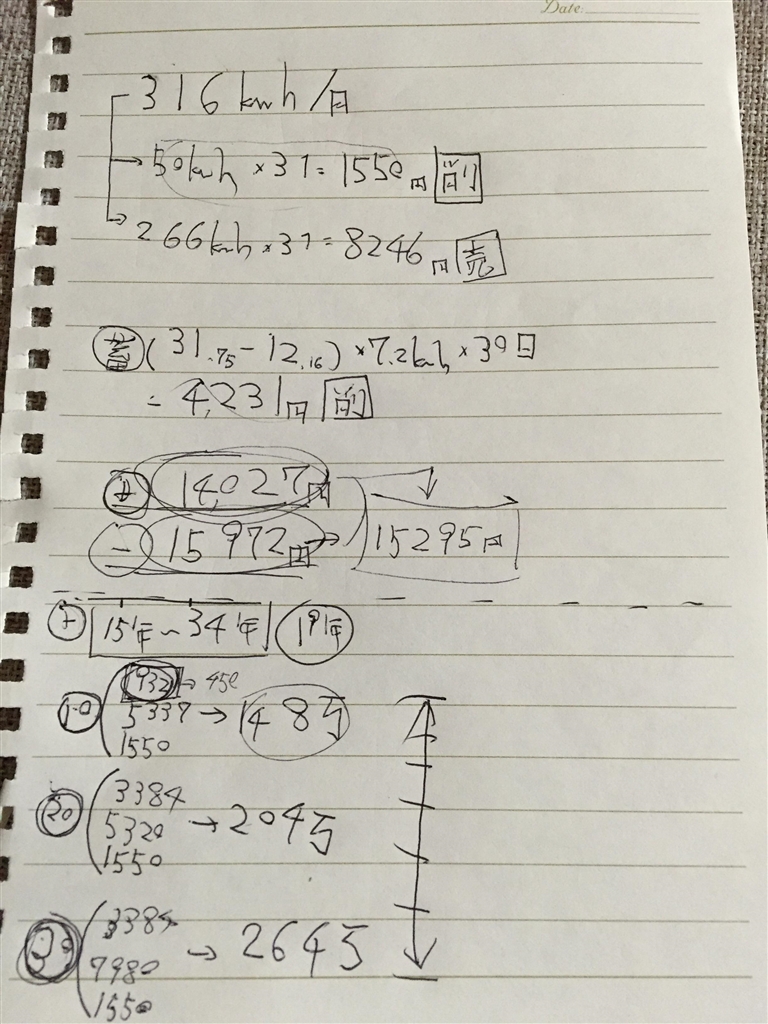 Date.
316kwh/月
→50kwh×31=1550円 削
→266kwh×31=8246円 売
蓄(31.75-12.16)×7.2kwh×30日
=4,231円 削
+ 14,027円
- 15972円 → 15295円
+ 15年~34年 19年
10 1932 → 450
5337 → 148万
1550
20 3384
5320 → 204万
1550
30 3384
7980 → 264万
1550